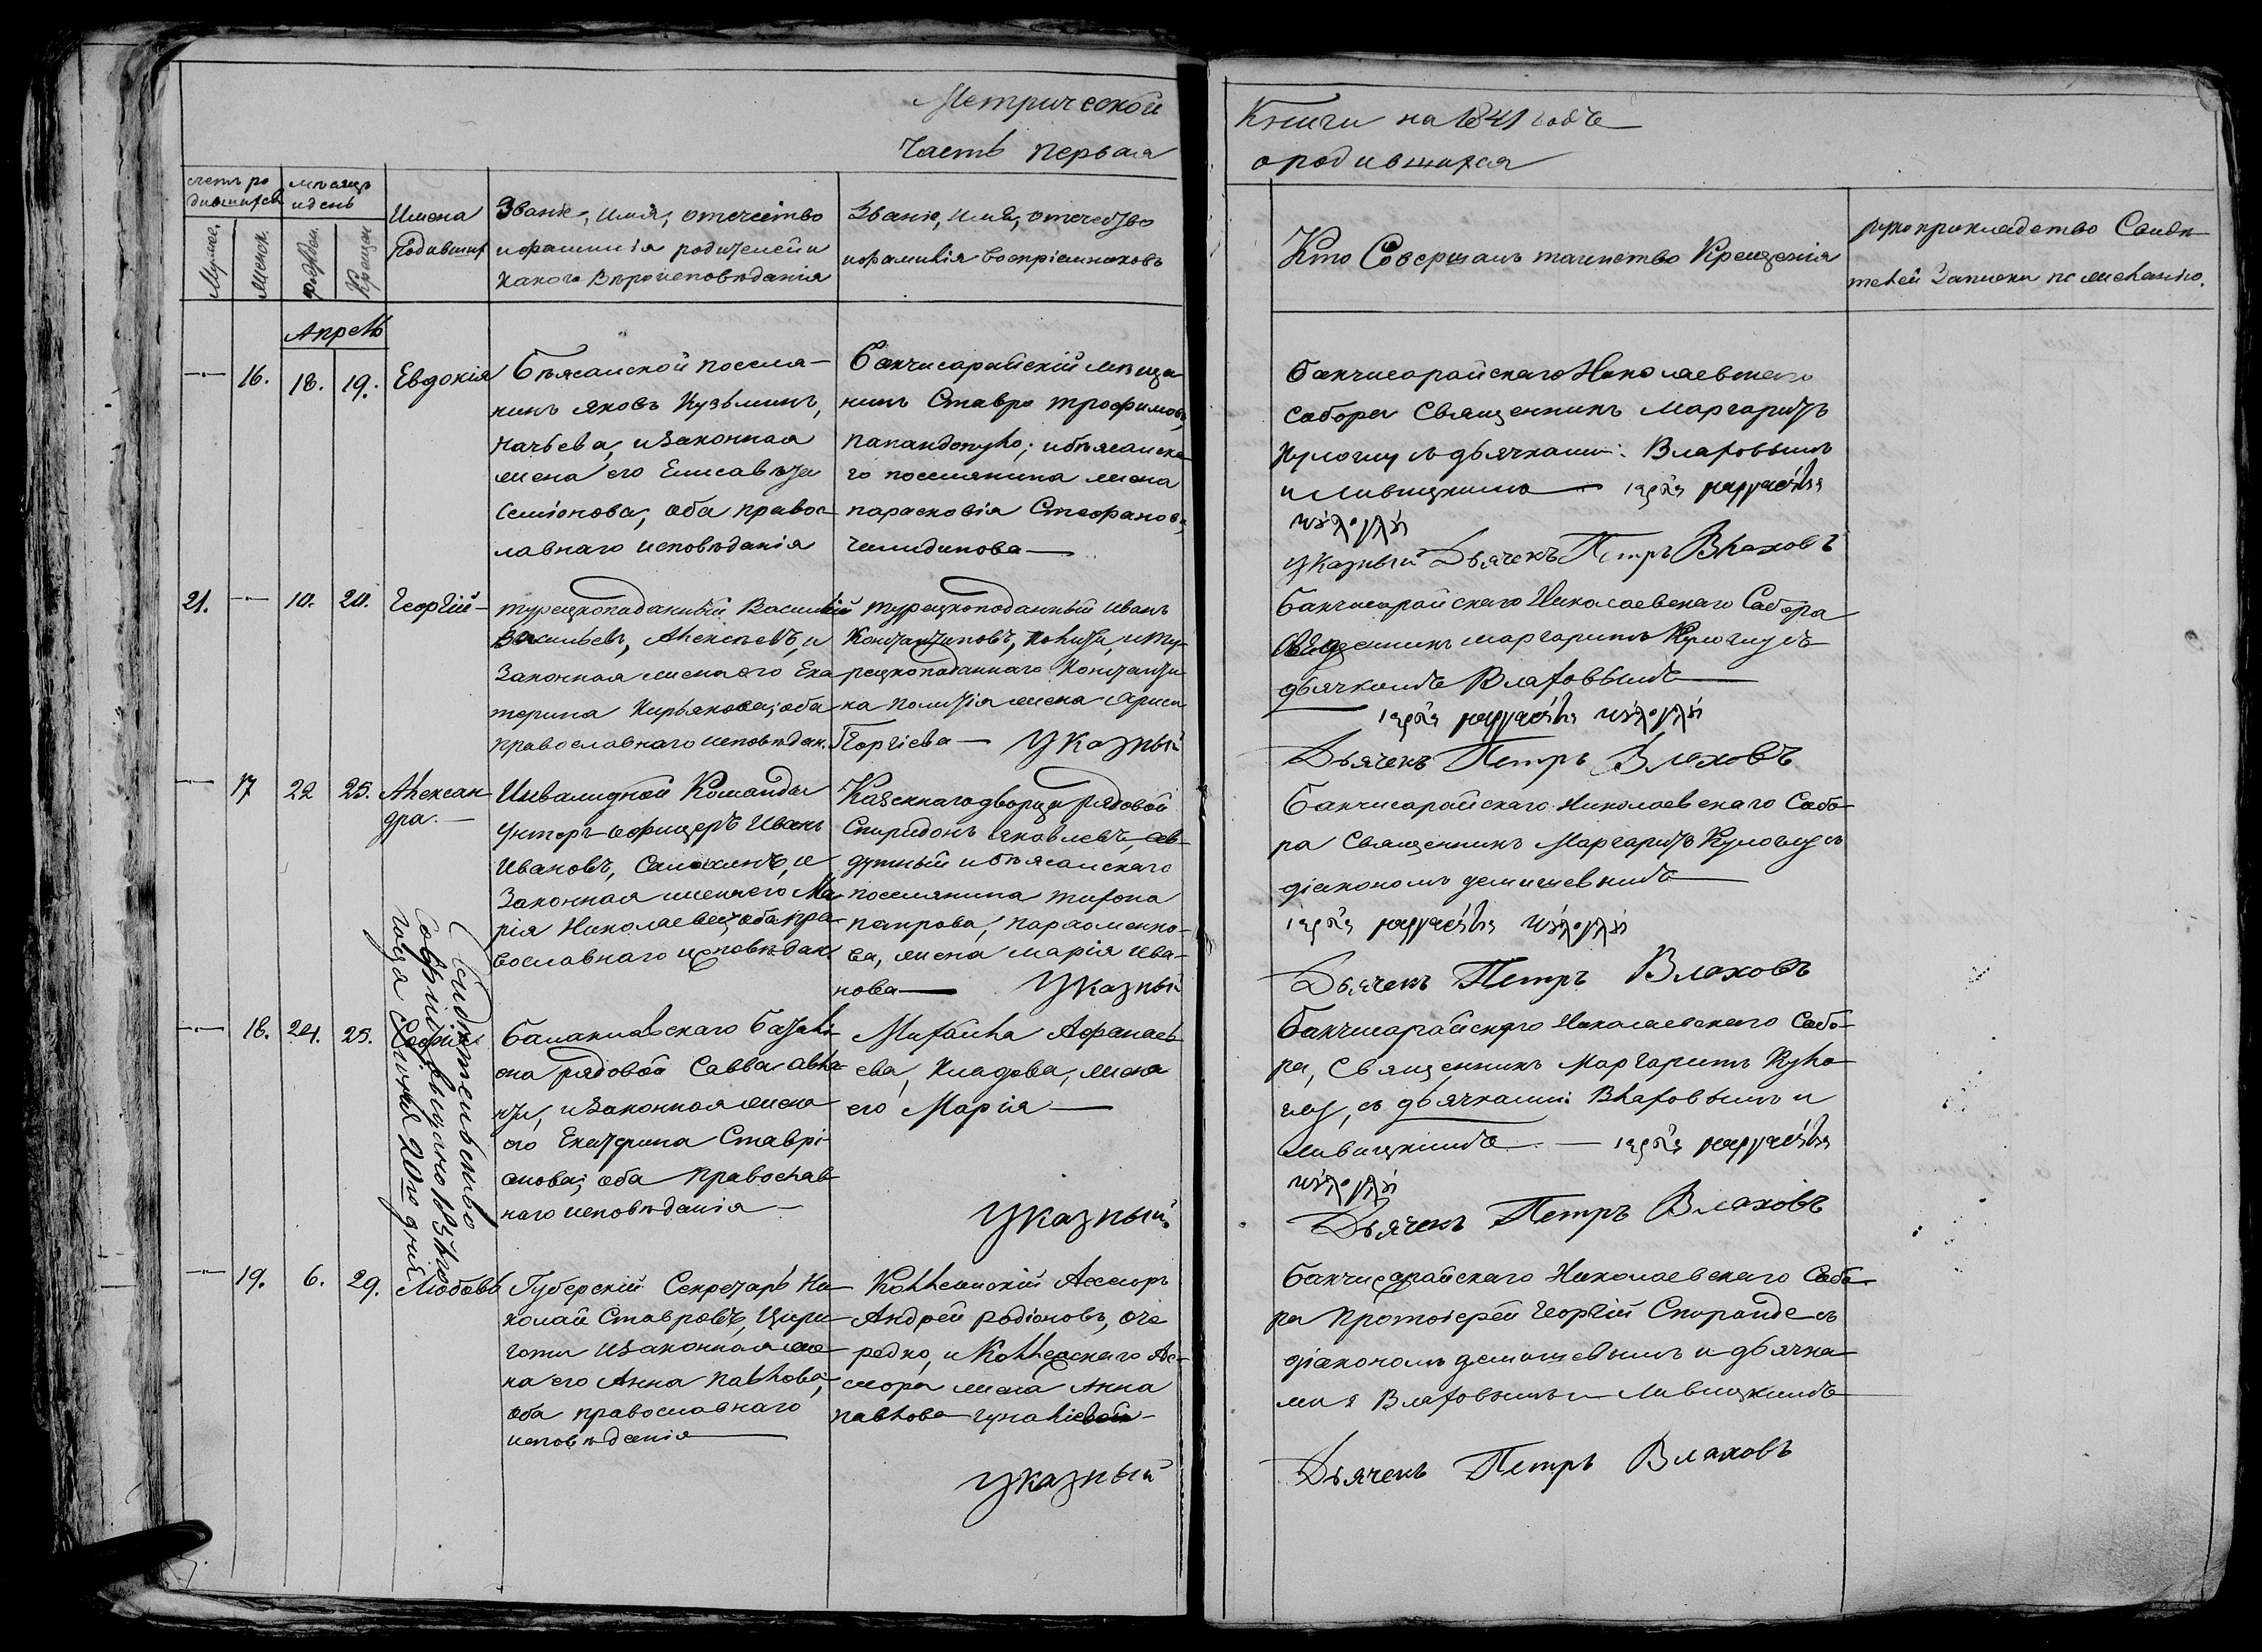 Метрической
Часть первая
Книги на 1841 годъ
о родившихся
счетъ ро
дившихся
мѣсяцъ
и день
Мужес.
Женск.
рожден.
Крещен
Имена
Родивших
Званіе, имя, отечество
и фамилія родителей и
какого Вѣроисповѣданія
Званіе, имя, отечество
и фамилія воспріемниковъ
Кто Совершалъ таинство Крещенія
рукоприкладство Свидѣ
телей Записки по желанію.
Апрель
16. 18. 19. Евдокія
Бѣясальской поселя-
нинъ яковъ Кузьминъ,
и законная
жена его Елисавета
Семіонова, оба правос-
лавнаго исповѣданія
Бахчисарайскій мѣща
нинъ Ставро трофимовъ,
папандопуло; и бѣясальска
го поселянина жена
парасковія Стефанова,
Челидинова
Бахчисарайскаго Николаевскаго
собора Священникъ Маргаритъ
Кулоглу съ дьячками: Влаховымъ
и Ливицкимъ
указный Дьячекъ Петръ Влаховъ
21. 10. 20. Георгій
турецкоподанный Василій
Васильевъ, Алексѣевъ, и
Законная жена его Ека
терина Кирьякова; оба
православнаго исповѣдан.
турецкоподанный Иванъ
Константиновъ, и ту-
рецкоподаннаго Константи
на жена
Георгіева — Указный
Бахчисарайскаго Николаевскаго Собора
Священникъ маргаритъ Кулоглу съ
дьячкомъ Влаховымъ
Дьячекъ Петръ Влаховъ
17 22 25. Алексан
дра.
Инвалидной Команды
Унтеръ-офицеръ Иванъ
Ивановъ, и
Законная жена его Ма
рія Николаева, оба пра
вославнаго исповѣдан.
Казеннаго дворца рядовой
Спиридонъ яковлевъ,
и бѣясальскаго
поселянина тихона
петрова, пархоменко-
ва, жена марія ива-
нова — Указный
Бахчисарайскаго Николаевскаго Собо-
ра Священникъ Маргаритъ Кулоглу съ
діакономъ
Дьячекъ Петръ Влаховъ
Свидѣтельство
года 20го дня
18. 24. 25. Софія
Балаклавскаго баталі-
она рядовой Савва
и законная жена
его Екатерина Ставрі-
анова; оба православ
наго исповѣданія
Михайла Афанась
ева, Кладова, жена
его Марія
Указный
Бахчисарайскаго Николаевскаго Собо-
ра, Священникъ Маргаритъ Куло-
глу, съ дьячками: Влаховымъ и
Ливицкимъ
Дьячекъ Петръ Влаховъ
19. 6. 29. Любовь
Губерскій Секретарь Ни-
колай Ставровъ, Цири-
готи и законная же-
на его Анна павлова,
оба православнаго
исповѣданія
Коллежскій Асесоръ
Андрей родіоновъ, Оче
редко, и Коллежскаго Ас-
сесора жена Анна
павлова
Указный
Бахчисарайскаго Николаевскаго Собо-
ра протоіерей Георгій Спиранде съ
діакономъ и дьячка
ми Влаховымъ и Ливицкимъ
Дьячекъ Петръ Влаховъ